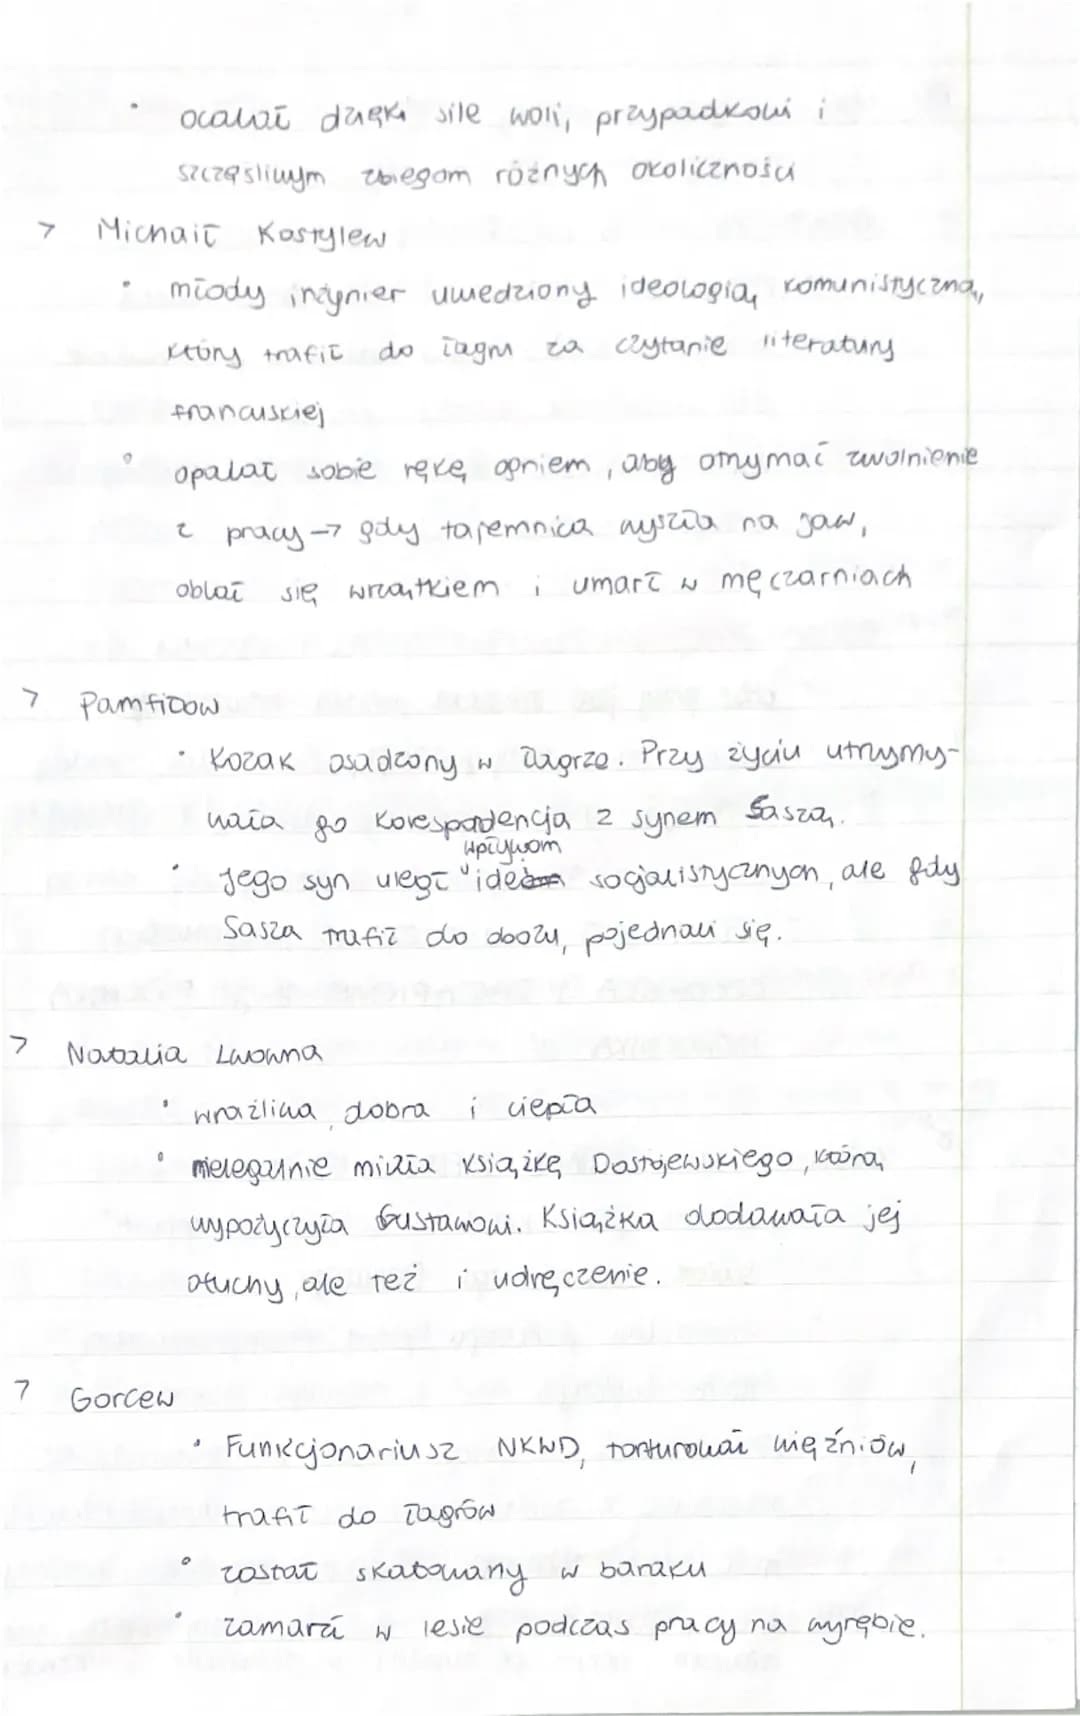 • ocalał dzięki sile woli, przypadkowi i
szczęśliwym zbiegom różnych okoliczności
> Michaił Kostylew
• młody inżynier uwiedziony ideologią komunistyczną,
który trafił do łagru za czytanie literatury
francuskiej
• opalał sobie rękę ogniem, aby otrzymać zwolnienie
z pracy → gdy tajemnica wyszła na jaw,
oblał się wrzątkiem i umarł w męczarniach
> Pamfiłow
• Kozak osadzony w łagrze. Przy życiu utrzymy-
wała go korespondencja z synem Saszą.
wpływom
• Jego syn uległ idei socjalistycznych, ale gdy
Sasza trafił do obozu, pojednali się.
> Natalia Lwowna
• wrażliwa, dobra i ciepła
• nielegalnie miała książkę Dostojewskiego, którą
wypożyczyła Gustawowi. Książka dodawała jej
otuchy, ale też i udręczenie.
> Gorcew
• Funkcjonariusz NKWD, torturował więźniów,
trafił do łagrów
• został skatowany w baraku
• zamarzł w lesie podczas pracy na wyrębie.